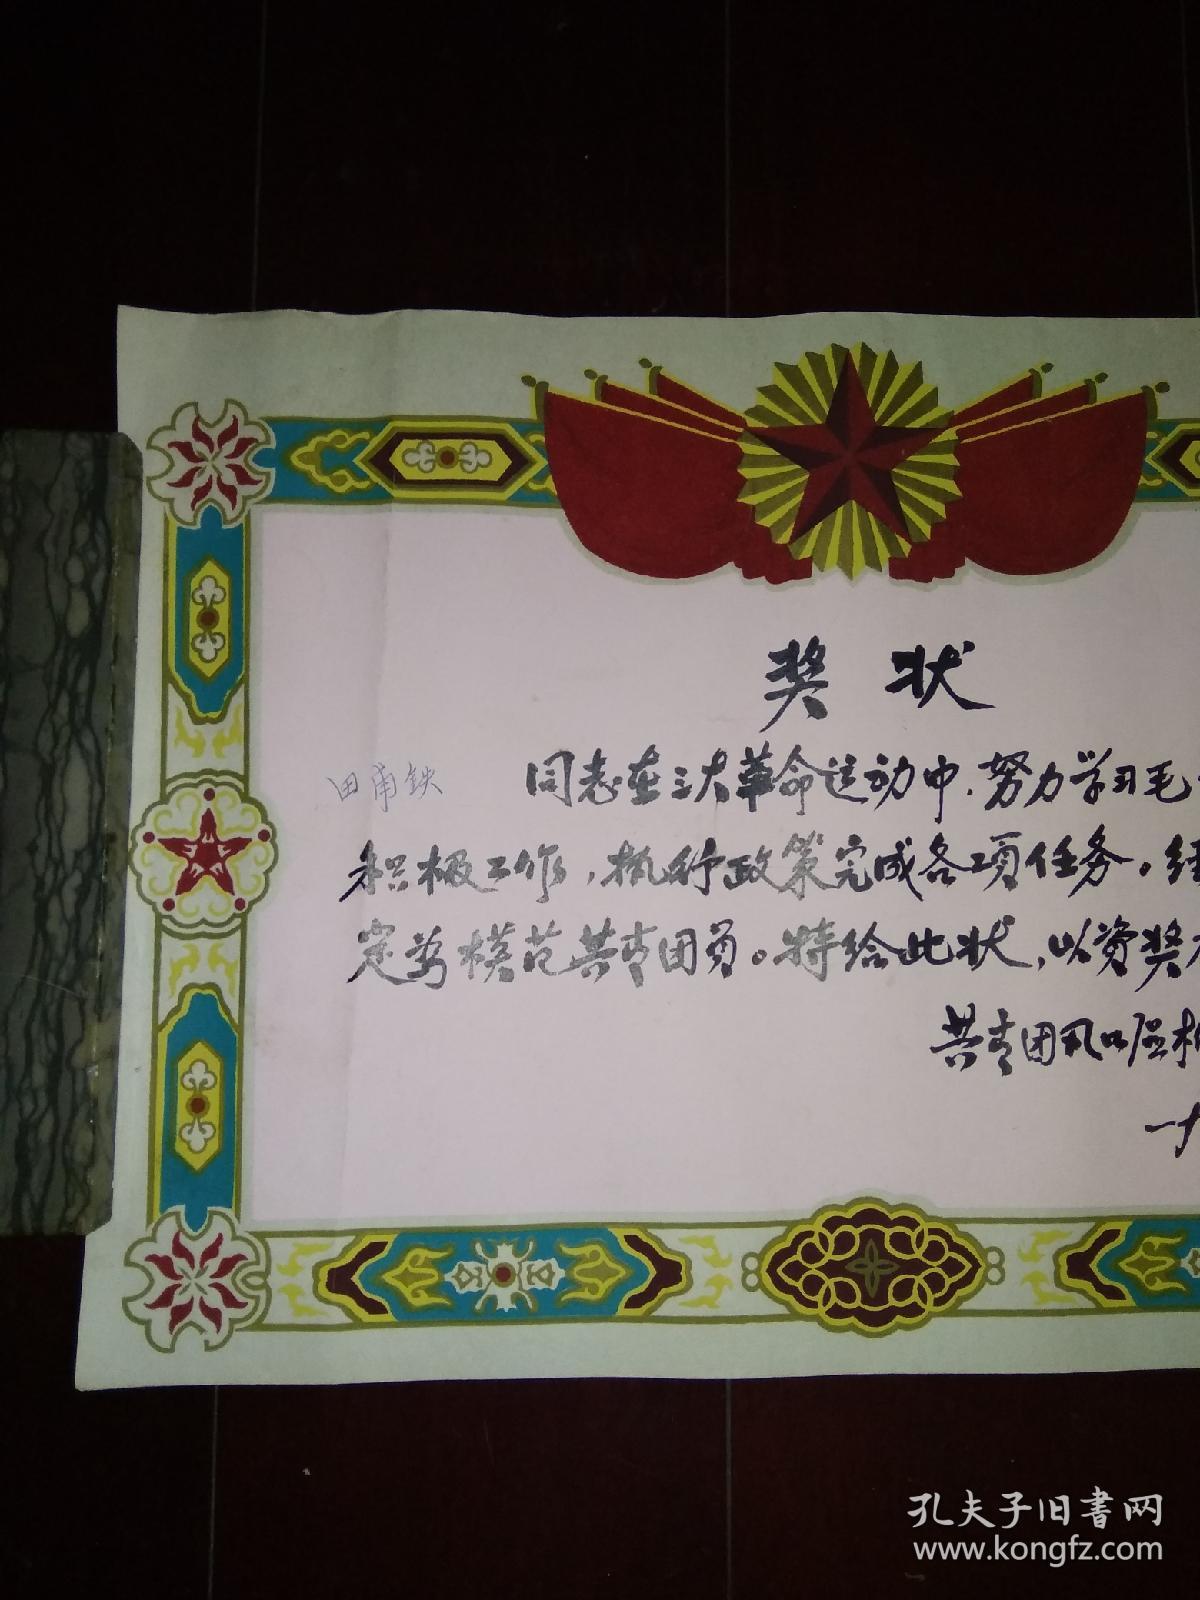 奖状
田甫铁 同志在三大革命运动中,努力学习毛
积极工作,执行政策完成各项任务。经
定为模范共青团员。特给此状,以资奖
共青团风口
一九
孔夫子旧書网
www.kongfz.com